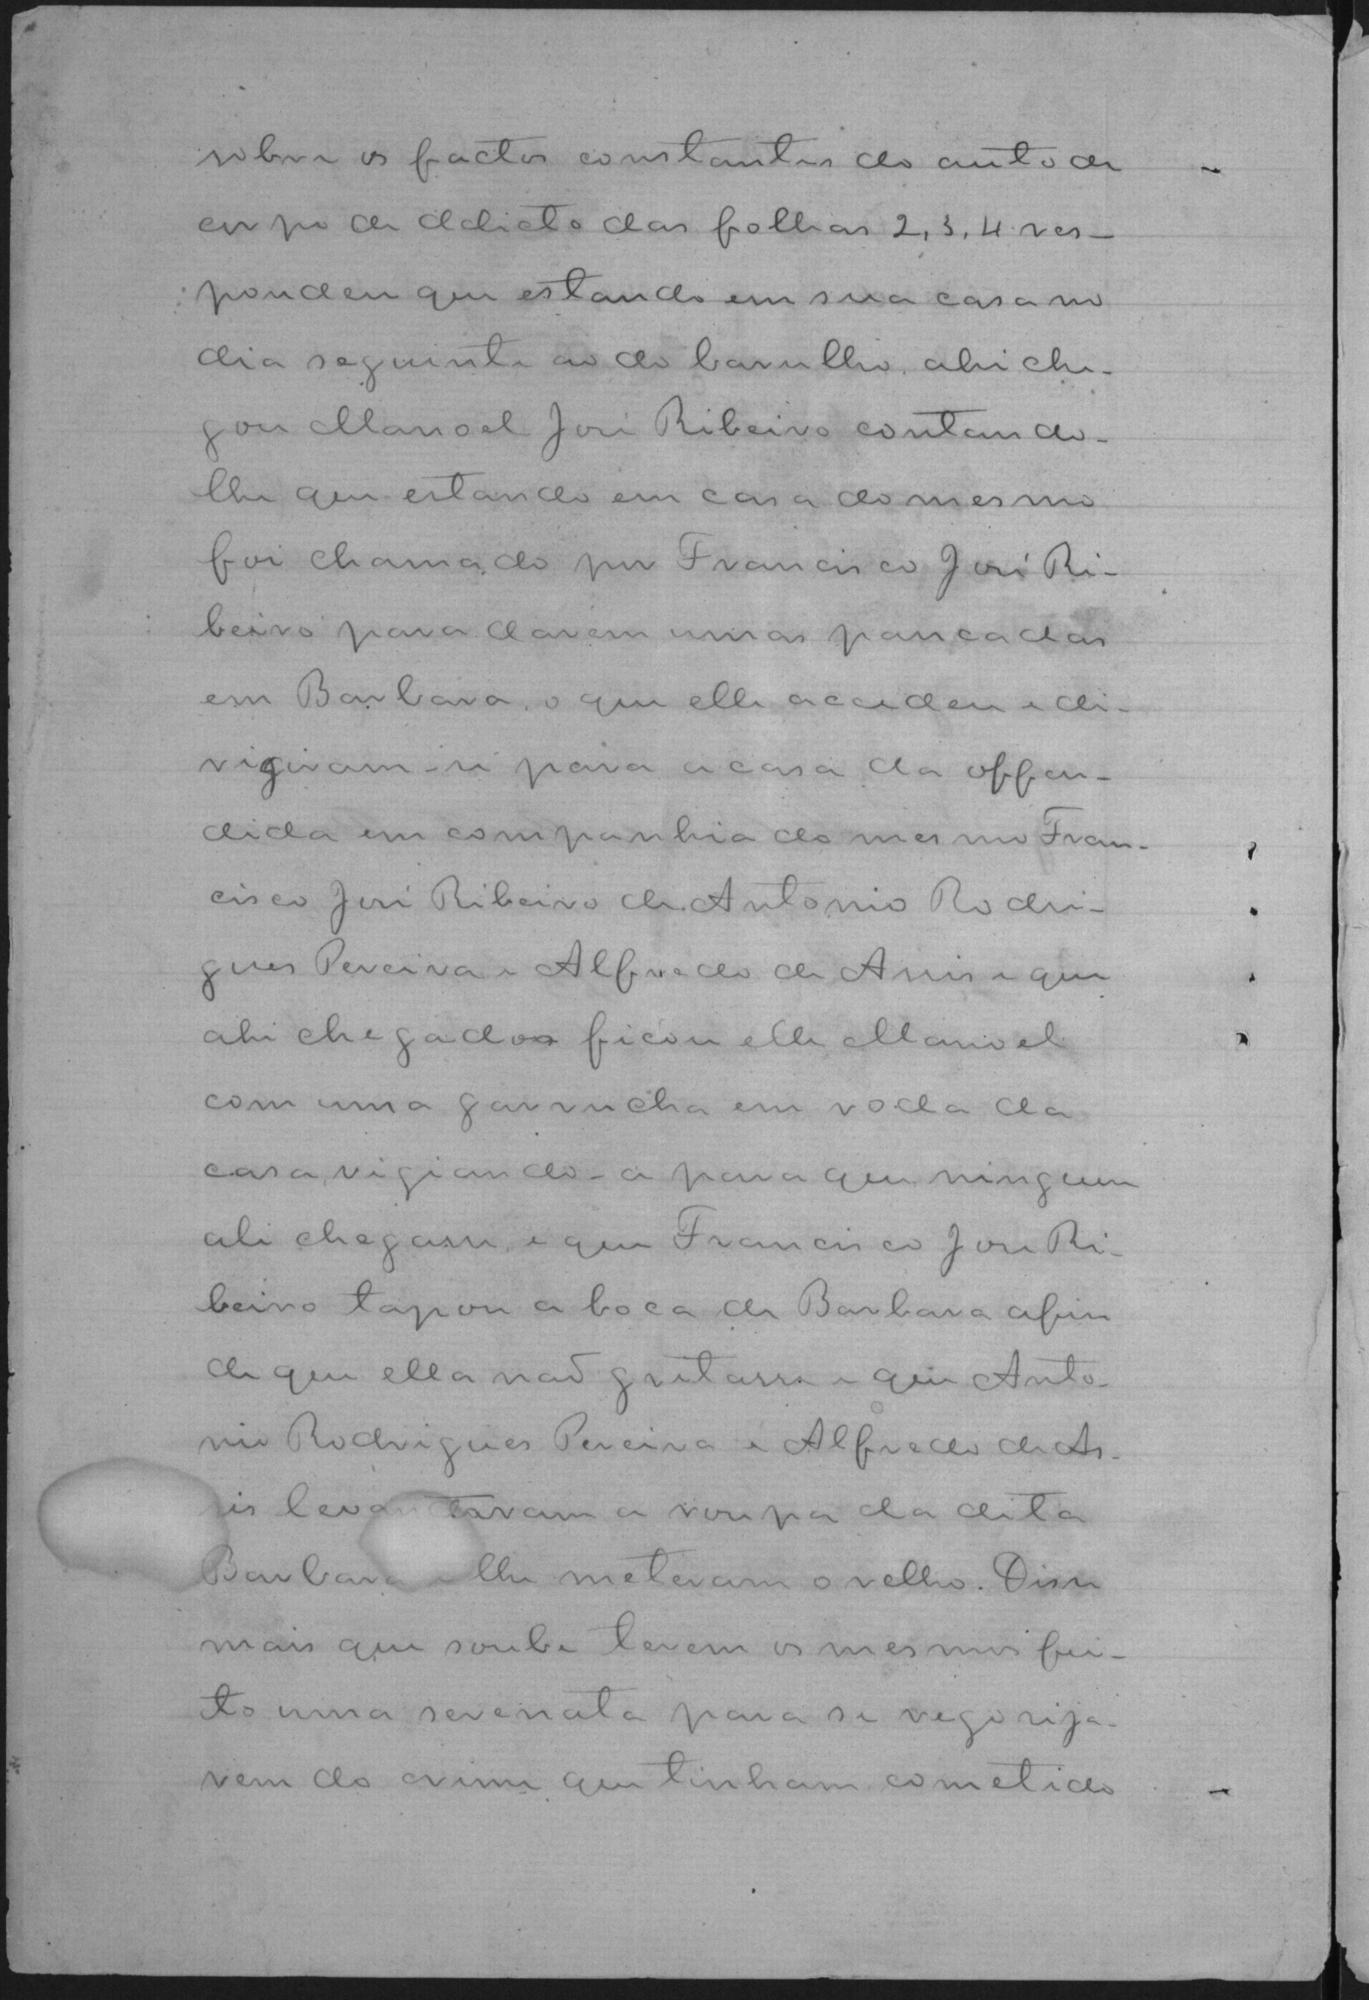 sobre os factos constantes do auto de
corpo de delicto das folhas 2, 3, 4 res-
pondeu que estando em sua casa no
dia seguinte ao do barulho, ahi che-
gou Manoel José Ribeiro contando-
lhe que estando em casa do mesmo
foi chamado por Francisco José Ri-
beiro para darem umas pancadas
em Barbara, o que elle accedeu e di-
rigiram-se para a casa da offen-
dida em companhia do mesmo Fran-
cisco José Ribeiro de Antonio Rodri-
gues Pereira e Alfredo de Assis e que
ahi chegados ficou elle Manoel
com uma garrucha em roda da
casa, vigiando-a para que ninguem
ali chegasse, e que Francisco José Ri-
beiro tapou a boca de Barbara afim
de que ella naõ gritasse e que Anto-
nio Rodrigues Pereira e Alfredo de As-
sis levantavam a roupa da dita
Barbara e lhe meteram o relho. Disse
mais que soube terem os mesmos fei-
to uma serenata para se regosija-
rem do crime que tinham cometido